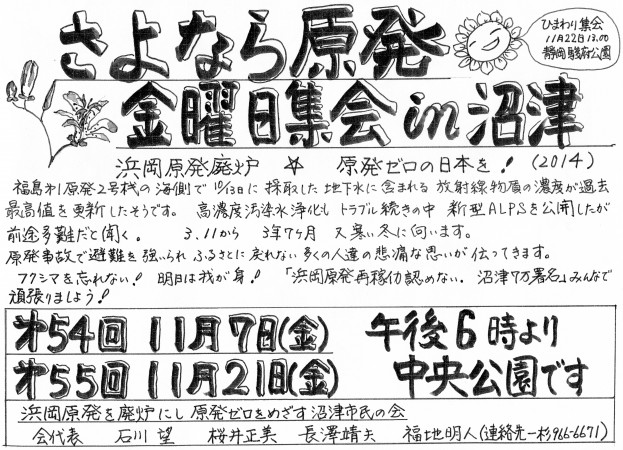 さよなら原発
金曜日集会in沼津
ひまわり集会
11月22日13.00
静岡駿府公園
浜岡原発廃炉 ☆ 原発ゼロの日本を! (2014)
福島第1原発2号機の海側で10/13日に採取した地下水に含まれる放射線物質の濃度が過去
最高値を更新したそうです。 高濃度汚染水浄化もトラブル続きの中 新型ALPSを公開したが
前途多難だと聞く。 3.11から 3年7ヶ月 又寒い冬に向います。
原発事故で避難を強いられ ふるさとに戻れない多くの人達の悲痛な思いが伝ってきます。
フクシマを忘れない! 明日は我が身! 「浜岡原発再稼仂認めない. 沼津7万署名」みんなで
頑張りましょう!
第54回 11月7日(金) 午後6時より
第55回 11月21日(金) 中央公園です
浜岡原発を廃炉にし原発ゼロをめざす沼津市民の会
会代表 石川望 桜井正美 長澤靖夫 福地明人(連絡先一杉966-6671)